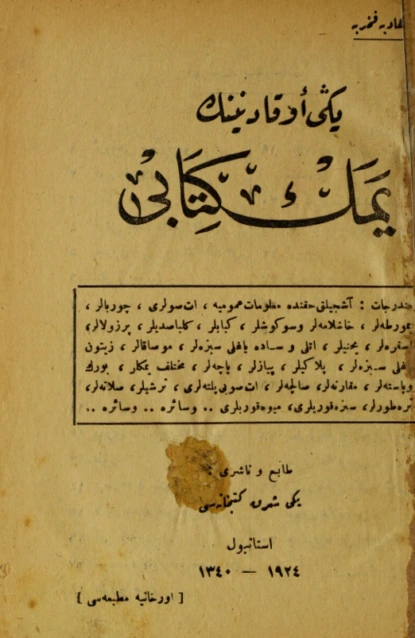 هادیه فخریه
یكی أو قادینینك
یمك كتابی
مندرجات : آشجیلق حقنده معلومات عمومیه ، ات صولری ، چوربالر ،
یمورطه‌لر ، خاشلامه‌لر وسوكوشلر ، كبابلر ، كلباصدیلر ، پرزولالر،
اسفره‌لر ، یخنیلر ، اتلی و ساده یاغلی سبزه‌لر ، موساقالر ، زیتون
یاغلی سبزه‌لر ، پلاكیلر ، پیازلر ، پاچه‌لر ، مختلف یمكلر ، بورك
وپاسته‌لر ، مقارنه‌لر ، صالچه‌لر ، ات صویی پلته‌لری ، ترشیلر ، صلاته‌لر،
تره‌طورلر ، سبزه قوریلری ، میوه قوریلری .. وسائره .. وسائره ..
طابع و ناشری :
یكی شرق كتبخانه‌سی
استانبول
١٩٢٤ — ١٣٤٠
[ اورخانیه مطبعه‌سی ]